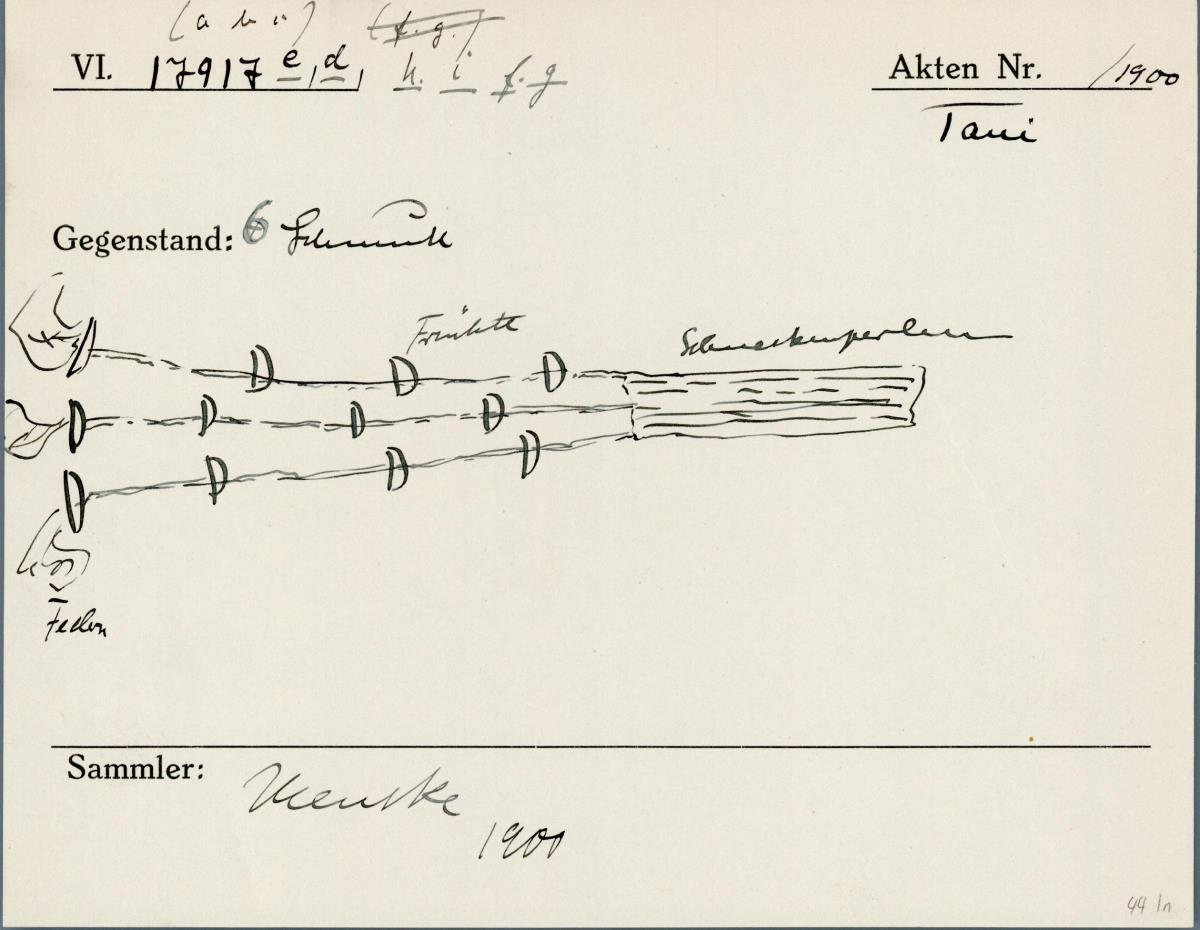 (a b c) (f. g.)
VI. 17917 e, d, h. i f. g
Akten Nr. /1900
Tani
Gegenstand: 6 Schmuck
Früchte
Schneckenperlen
Federn
Sammler:
1900
44